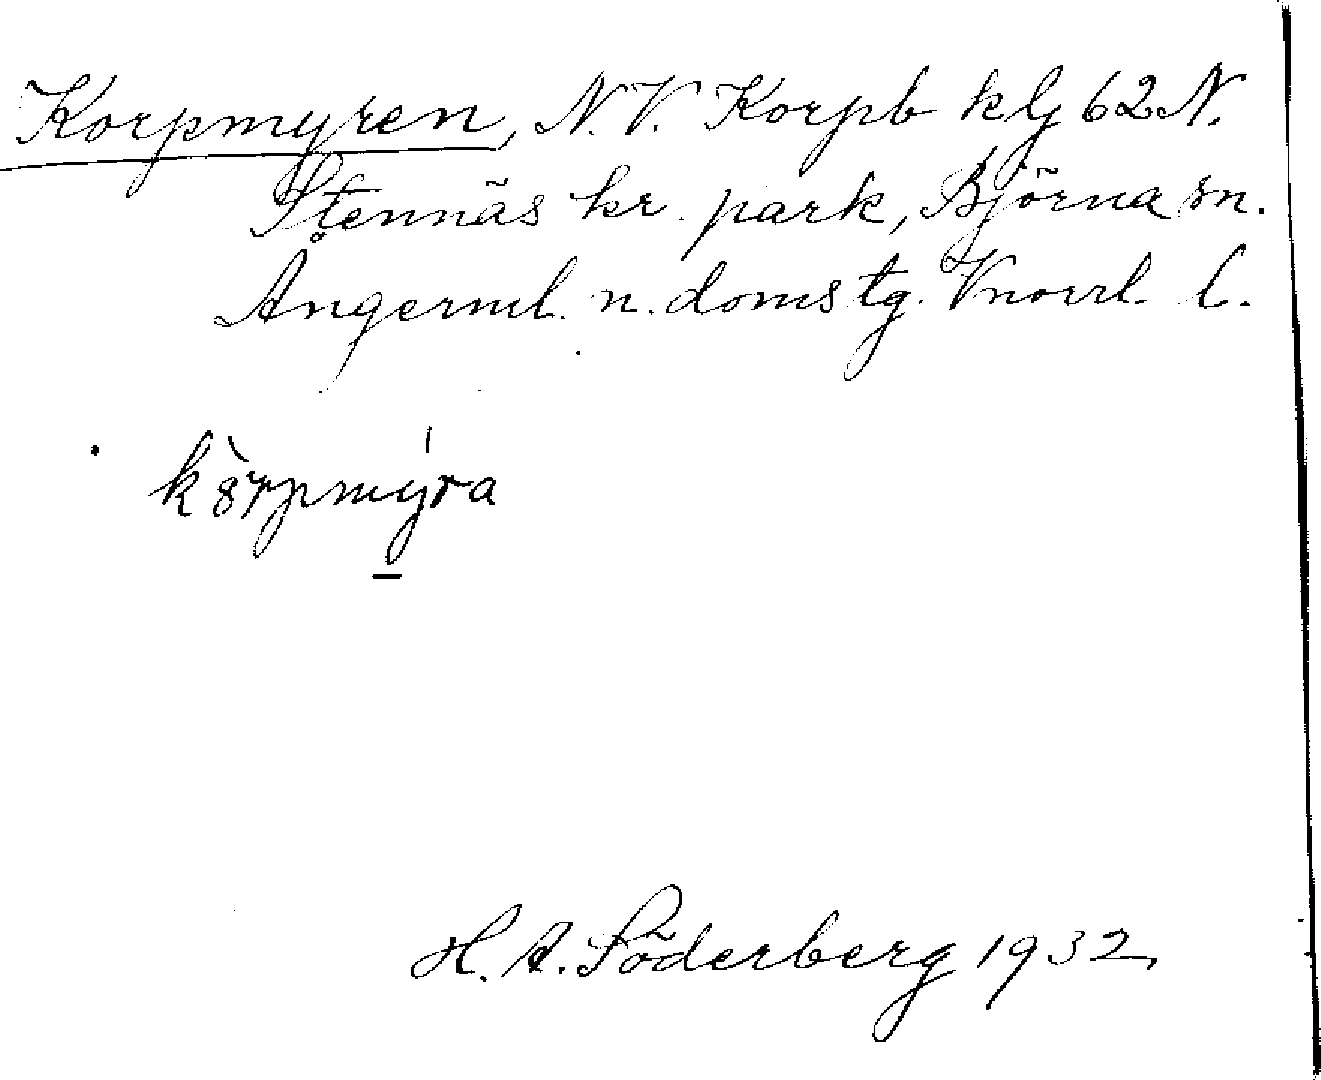 Korpmyren, N.V. Korpb klj 62 N.
Stennäs kr. park, Björna sn.
Ångerml. n. domstg. Vnorrl. l.
kȣ̀rpmýra
H. A. Söderberg 1932,